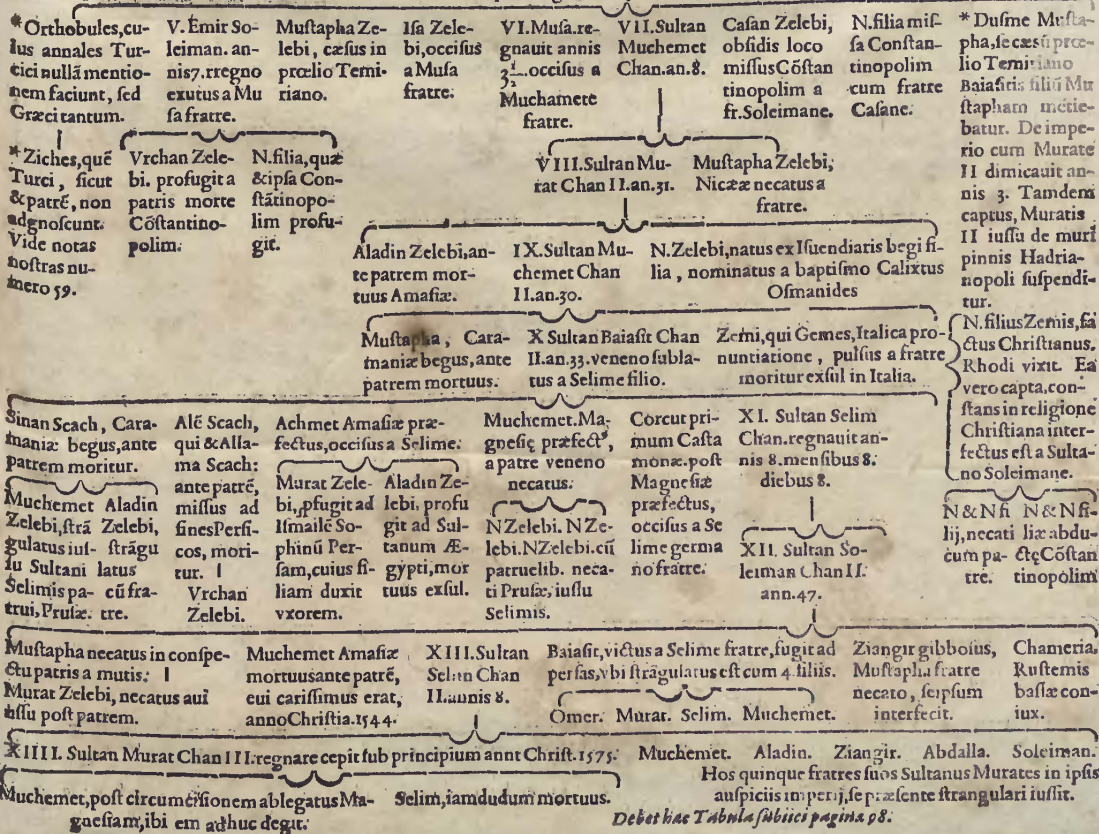 *Orthobules,cu-
ius annales Tur-
cici nullā mentio-
nem faciunt, ſed
Græci tantum.
V. Emir So-
leiman. an-
nis 7. rregno
exutus a Mu
ſa fratre.
Muſtapha Ze-
lebi, cæſus in
prœlio Temi-
riano.
Iſa Zele-
bi, occiſus
a Muſa
fratre.
VI. Muſa. re-
gnauit annis
3½. occiſus a
Muchamete
fratre.
VII. Sultan
Muchemet
Chan. an. 8.
Caſan Zelebi,
obſidis loco
miſſus Cōſtan
tinopolim a
fr. Soleimane.
N. filia miſ-
ſa Conſtan-
tinopolim
cum fratre
Caſane.
* Duſme Muſta-
pha, ſe cæsū prœ-
lio Temiriano
Baiaſitis filiū Mu
ſtapham metie-
batur. De impe-
rio cum Murate
II dimicauit an-
nis 3. Tandem
captus, Muratis
II iuſſu de muri
pinnis Hadria-
nopoli ſuſpendi-
tur.
*Ziches, quē
Turci, ſicut
& patrē, non
adgnoſcunt.
Vide notas
noſtras nu-
mero 59.
Vrchan Zele-
bi. profugit a
patris morte
Cōſtantino-
polim.
N. filia, quæ
& ipſa Con-
ſtātinopo-
lim profu-
git.
VIII. Sultan Mu-
rat Chan II. an. 31.
Muſtapha Zelebi,
Nicææ necatus a
fratre.
Aladin Zelebi, an-
te patrem mor-
tuus Amaſiæ.
IX. Sultan Mu-
chemet Chan
II. an. 30.
N. Zelebi, natus ex Iſuendiaris begi fi-
lia, nominatus a baptiſmo Calixtus
Oſmanides
Muſtapha, Cara-
maniæ begus, ante
patrem mortuus.
X Sultan Baiaſit Chan
II. an. 33. veneno ſubla-
tus a Selime filio.
Zemi, qui Gemes, Italica pro-
nuntiatione, pulſus a fratre
moritur exſul in Italia.
N. filius Zemis, fa
ctus Chriſtianus.
Rhodi vixit. Ea
vero capta, con-
ſtans in religione
Chriſtiana inter-
fectus eſt a Sulta-
no Soleimane.
Sinan Scach, Cara-
maniæ begus, ante
patrem moritur.
Alē Scach,
qui & Alla-
ma Scach:
ante patrē,
miſſus ad
fines Perſi-
cos, mori-
tur.
Vrchan
Zelebi.
Achmet Amaſiæ præ-
fectus, occiſus a Selime.
Muchemet. Ma-
gneſię præfectꝰ,
a patre veneno
necatus.
Corcut pri-
mum Caſta
monæ. poſt
Magneſiæ
præfectus,
occiſus a Se
lime germa
no fratre.
XI. Sultan Selim
Chan. regnauit an-
nis 8. menſibus 8.
diebus 8.
Muchemet
Zelebi, ſtrā
gulatus iuſ-
ſu Sultani
Selimis pa-
trui, Pruſæ.
Aladin
Zelebi,
ſtrāgu
latus
cū fra-
tre.
Murat Zele-
bi, ꝓfugit ad
Iſmailē So-
phinū Per-
ſam, cuius fi-
liam duxit
vxorem.
Aladin Ze-
lebi, profu
git ad Sul-
tanum Æ-
gypti, mor
tuus exſul.
N Zelebi. N Ze-
lebi. N Zelebi. cū
patruelib. neca-
ti Pruſæ, iuſſu
Selimis.
XII. Sultan So-
leiman Chan II.
ann. 47.
N & N fi
lij, necati
cum pa-
tre.
N & N fi-
liæ abdu-
ctę Cōſtan
tinopolim
Muſtapha necatus in conſpe-
ctu patris a mutis.
Murat Zelebi, necatus aui
iuſſu poſt patrem.
Muchemet Amaſiæ
mortuus ante patrē,
cui cariſſimus erat,
anno Chriſtia. 1544.
XIII. Sultan
Selim Chan
II. annis 8.
Baiaſit, victus a Selime fratre, fugit ad
perſas, vbi ſtrāgulatus eſt cum 4. filiis.
Omer. Murat. Selim. Muchemet.
Ziangir gibboſus,
Muſtapha fratre
necato, ſeipſum
interfecit.
Chameria,
Ruſtemis
baſſæ con-
iux.
XIIII. Sultan Murat Chan III. regnare cepit ſub principium anni Chriſt. 1575.
Muchemet. Aladin. Ziangir. Abdalla. Soleiman.
Hos quinque fratres ſuos Sultanus Murates in ipſis
auſpiciis imperij, ſe præſente ſtrangulari iuſſit.
Muchemet, poſt circumciſionem ablegatus Ma-
gneſiam, ibi em adhuc degit.
Selim, iamdudum mortuus.
Debet hæc Tabula ſubiici pagina 98.